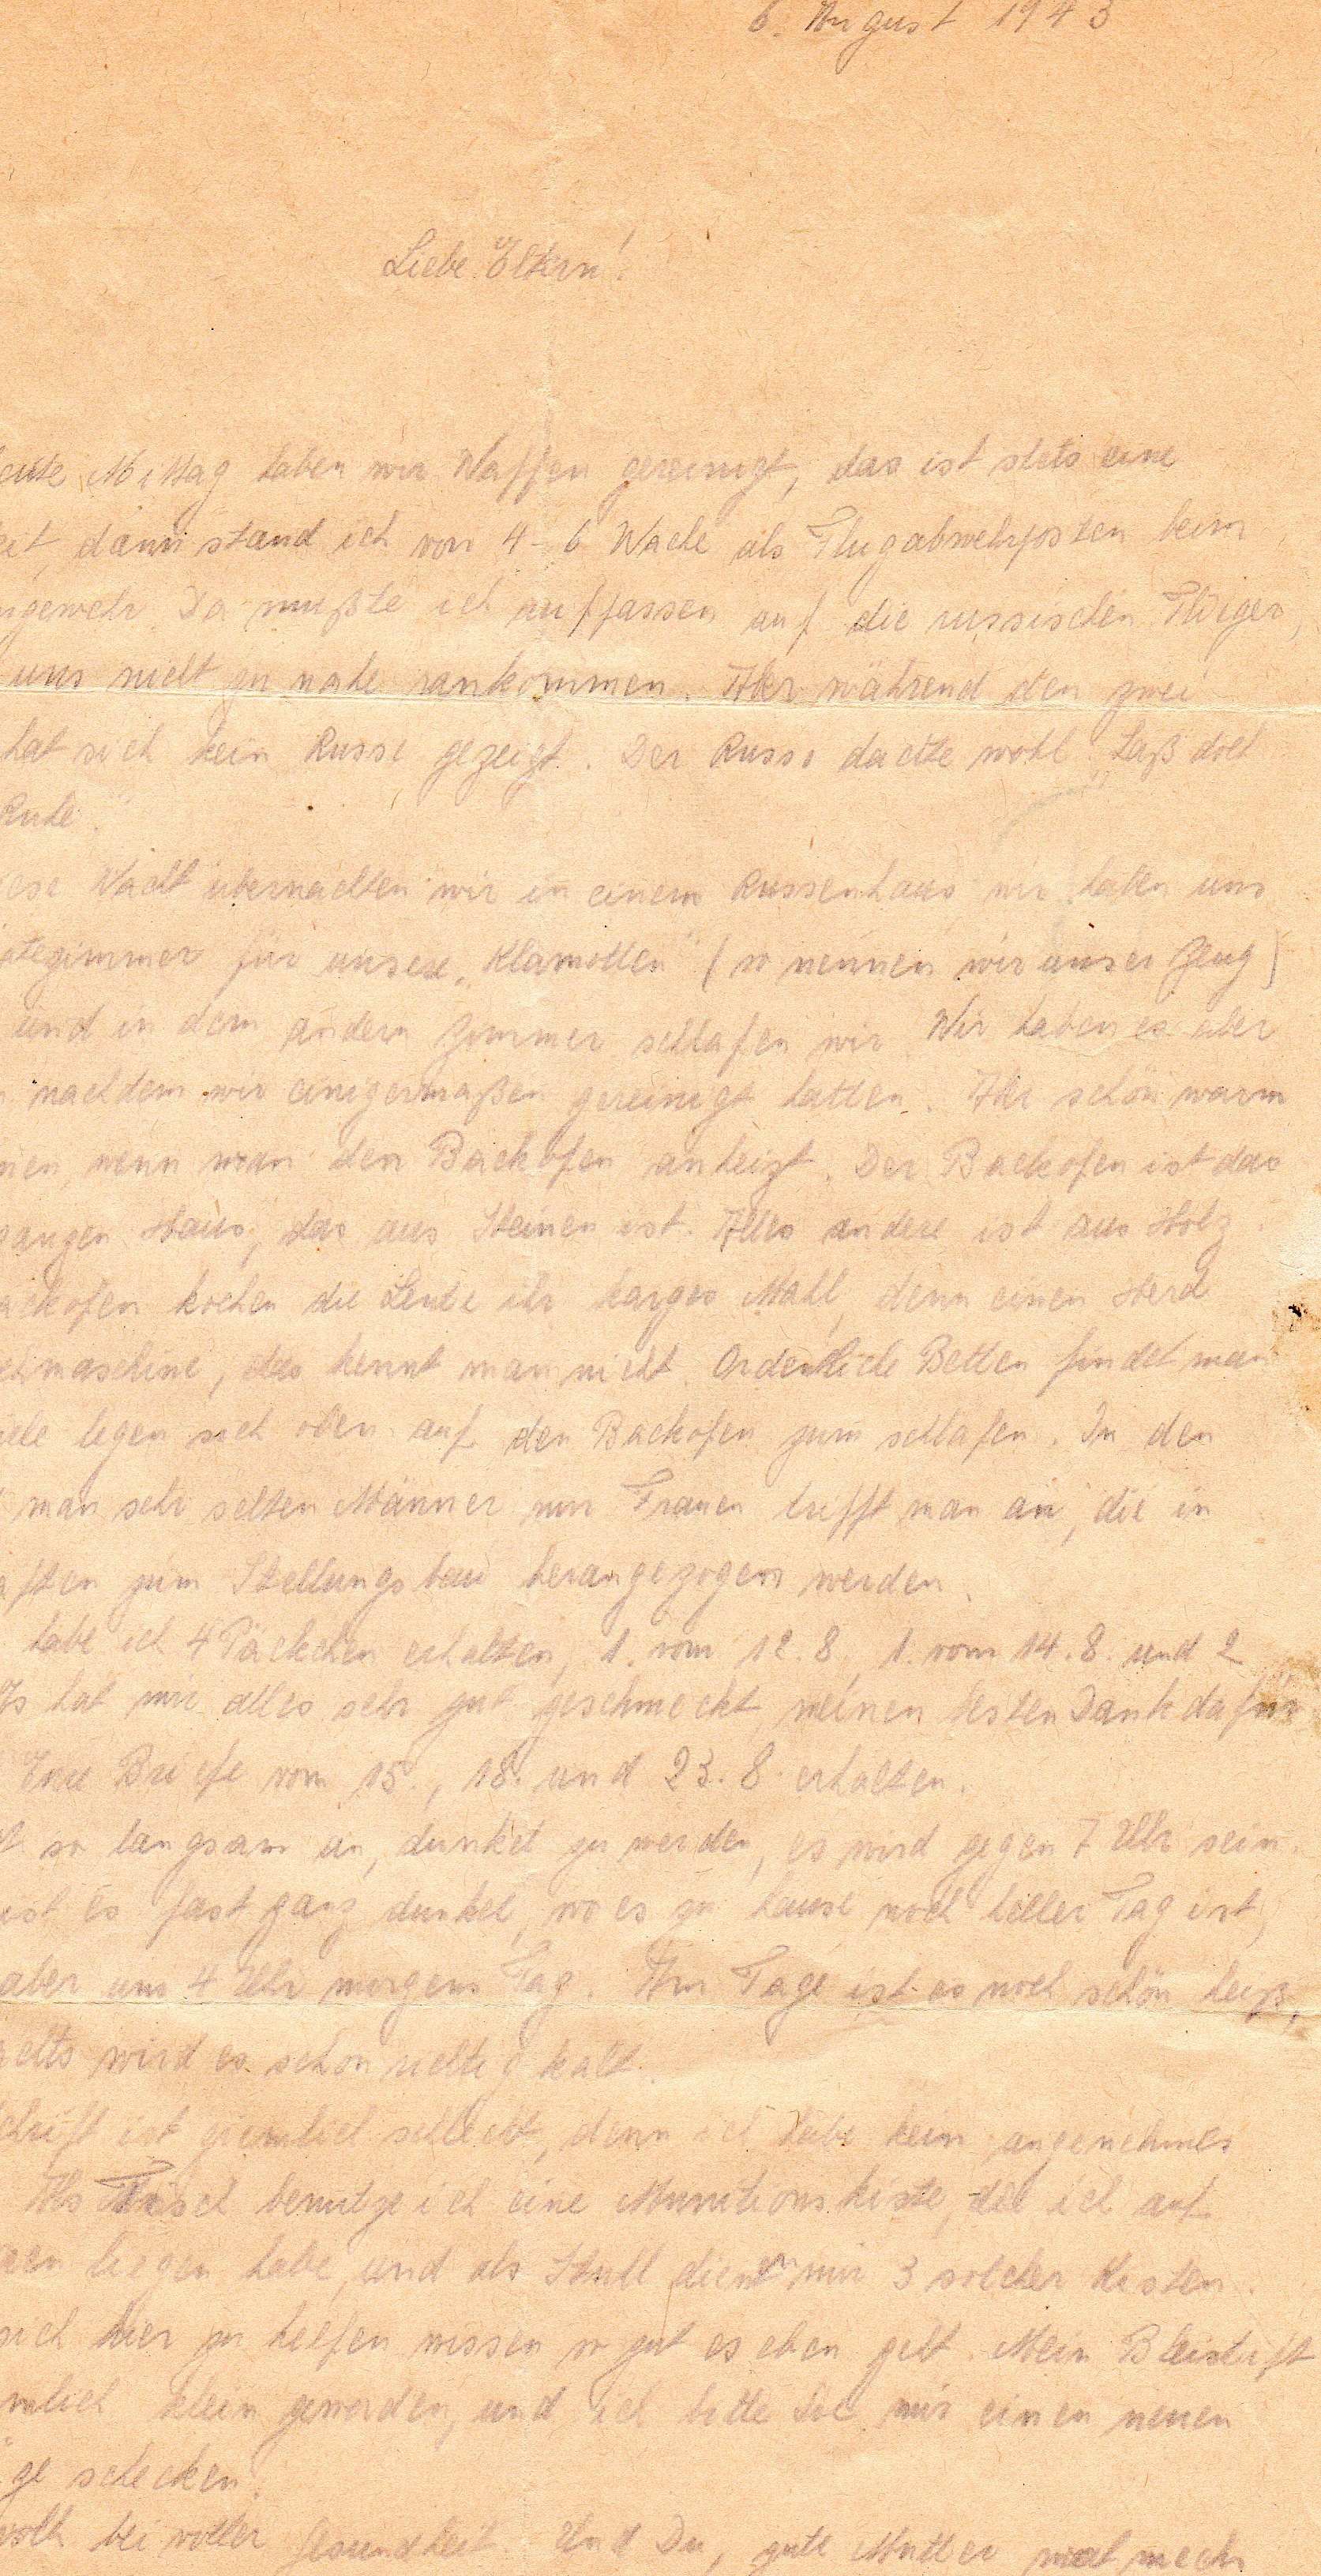 6. August 1943
Liebe Eltern!
eute Mittag haben wir Waffen gereinigt, das ist stets eine
eit, dann stand ich von 4-6 Wache als Flugabwehrposten beim
ngewehr. Da mußte ich aufpassen auf die russischen Flieger,
uns nicht zu nahe rankommen. Aber während den zwei
hat sich kein Russe gezeigt. Der Russe dachte wohl „Laß doch
Ruhe".
iese Nacht übernachten wir in einem Russenhaus wir haben uns
zimmer für unsere „Klamotten" (so nennen wir unser Zeug)
und in dem andern Zimmer schlafen wir. Wir haben es aber
nachdem wir einigermaßen gereinigt hatten. Aber schön warm
men, wenn man den Backofen anheizt. Der Backofen ist das
ganzen Haus, das aus Steinen ist. Alles andere ist aus Holz.
ackofen kochen die Leute ihr karges Mahl, denn einen Herd
chmaschine, das kennt man nicht. Ordentliche Betten findet man
iele legen sich oben auf den Backofen zum schlafen. In den
man sehr selten Männer nur Frauen trifft man an, die in
aften zum Stellungsbau herangezogen werden.
habe ich 4 Päckchen erhalten, 1. vom 12.8., 1. vom 14.8. und 2
Es hat mir alles sehr gut geschmeckt, meinen besten Dank dafür
Eure Briefe vom 15., 18. und 23.8. erhalten.
t so langsam an, dunkel zu werden, es wird gegen 7 Uhr sein.
ist es fast ganz dunkel, wo es zu hause noch heller Tag ist,
aber um 4 Uhr morgens Tag. Am Tage ist es noch schön heiß,
achts wird es schon richtig kalt.
chrift ist ziemlich schlecht, denn ich habe kein angenehmes
Als Tisch benutze ich eine Munitionskiste, die ich auf
een liegen habe, und als Stuhl dienen mir 3 solcher Kisten.
sich hier zu helfen wissen so gut es eben geht. Mein Bleistift
mlich klein geworden, und ich bitte Sie mir einen neuen
ge schicken.
wohl bei voller Gesundheit. Und Du, gute Mutter mach mehr